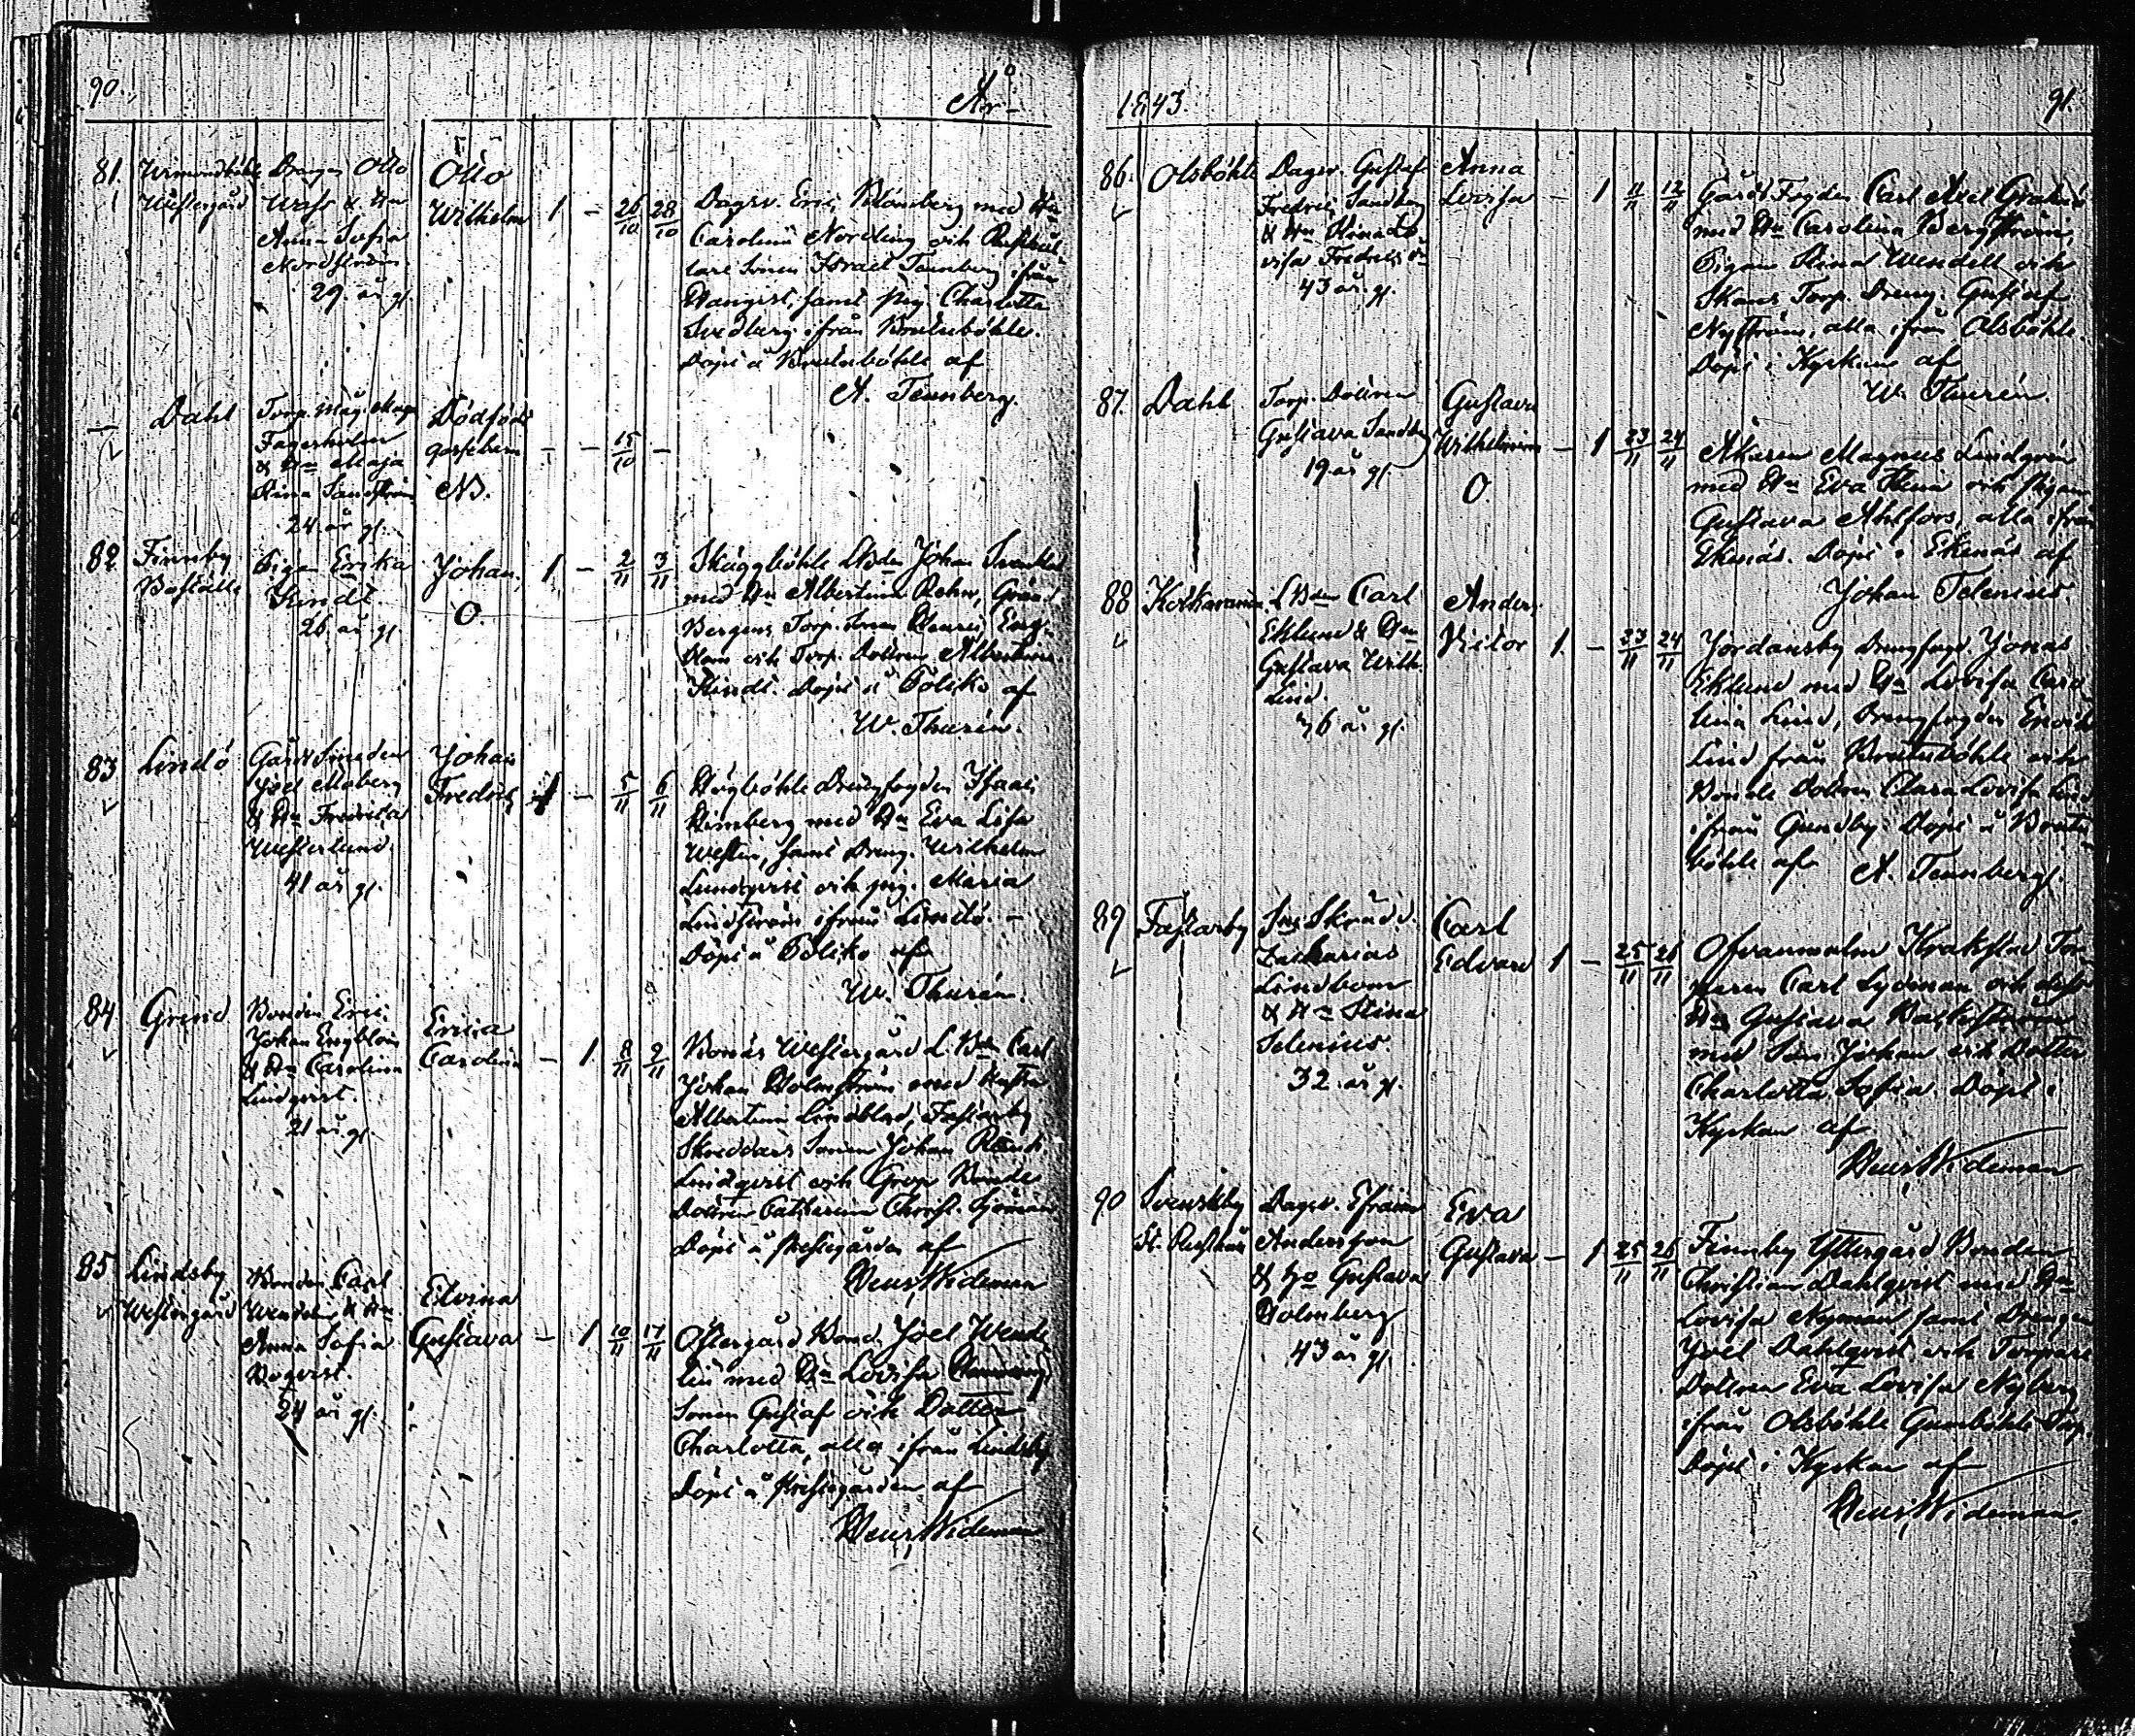 90.
År
81.
Westergård
Drängen Otto
Anna Sofia
Nordström
29 år gl.
Otto
Wilhelm
1 - 26/10 28/10
Dagsv. Eric Blomberg med Hu
Carolina Nordling och
Sonen Israel Tennberg ifrån
samt pig. Charlotta
Svedberg ifrån
Döpt å af
A. Tennberg.
-
Dahl
Torp. Måg.
Fagerholm
& Hu Maja
Stina Sandström
24 år gl.
Dödfödt
gossebarn
NB.
- - 15/10 -
82
Finnby
Boställe
Pigan Erika
Kindt
26 år gl.
Johan.
O.
1 - 2/11 3/11
Skäggböhle Johan
med Hu Albertina Rehn,
Torp. Sonen Henric Eng-
blom och Torp. Dottren Albertina
Kindt. Döpt å Poliko af
W. Thurén.
83
Lindö
Gårds Smeden
Joel Moberg
& Hu Fredrika
Westerlund.
41 år gl.
Johan
Fredrik
1 - 5/11 6/11
Högböhle Drengfogden Isaac
med Hu Eva Lisa
Westin, samt Dreng. Wilhelm
Lundqvist och pig. Maria
Lindström ifrån Lindö. -
Döpt å Poliko af
W. Thurén.
84
Grind
Bonden Eric
Johan Engblom
& Hu Carolina
Lindqvist.
21 år gl.
Erica
Carolina
- 1 8/11 9/11
Bonäs Westergård L. Bdn Carl
Johan Holmström med Hustru
Albertina Lindblad, Fastarby
Skreddars Sonen Johan
Lindqvist och Grop Bonde
Dottren Catharina Christ. Sjöman
Döpt å Prestgården af
Henr. Wideman
85
Lindsby
Westergård
Bonden Carl
Wendelin & Hu
Anna Sofia
24 år gl.
Elvina
Gustava
- 1 10/11 17/11
Östergård Bond. Joel Wende
lin med Hu Lovisa
Sonen Gustaf och Dotter
Charlotta, alla ifrån Lindsby
Döpt å Prestgården af
Henr. Wideman
1843.
91.
86.
Olsböhle
Dagsv. Gustaf
Fredric Sandberg
& Hu Stina Lo
visa Fredrics dr
43 år gl.
Anna
Lovisa
- 1 11/11 12/11
Gårds Fogden Carl Axel
med Hu Carolina Bergström,
Pigan Stina Wendell och
Torp. Dreng. Gustaf
Nyström, alla ifrån Olsböhle.
Döpt i Kyrkan af
W. Thurén.
87.
Dahl
Torp. Dottren
Gustava Sandberg
19 år gl.
Gustava
Wilhelmina
O.
- 1 23/11 24/11
Åkaren Magnus Lindgrén
med Hu Eva Stina och pigan
Gustava Ahlfors, alla ifrån
Ekenäs. Döpt i Ekenäs af
Johan Telenius.
88
L Bdn Carl
Eklund & Hu
Gustava Wilh.
Lind.
36 år gl.
Anders
Victor
1. - 23/11 24/11
Jordansby Drengfogd. Jonas
Eklund med Hu Lovisa Caro
lina Lind, Drengfogden Enoch
Lind från och
Bonde Dottren Clara Lovisa Lind
ifrån Gundby. Döpt å
böhle af A. Tennberg.
89
Fastarby
Skrädd.
Zacharias
Lindbom
& Hu Stina
Selenius.
32 år gl.
Carl
Edvard
1 - 25/11 26/11
Ofvanmalm Krakstad Tor-
paren Carl Lydman och dess
Hu Gustava Backström
med Son Johan och Dotter
Charlotta Sofia. Döpt i
Kyrkan af
Henr. Wideman
90
Svenskby
St. Rusthåll
Dagsv. Efraim
Andersson
& Gustava
Holmberg
43 år gl.
Eva
Gustava
- 1 25/11 26/11
Finnby Yttergård Bonden
Christian Dahlqvist med Hu
Lovisa Nyman samt Drengen
Joel Dahlqvist och Torpare
Dottren Eva Lovisa Nyberg
ifrån Olsböhle Gumböhle Torp.
Döpt i Kyrkan af
Henr. Wideman.